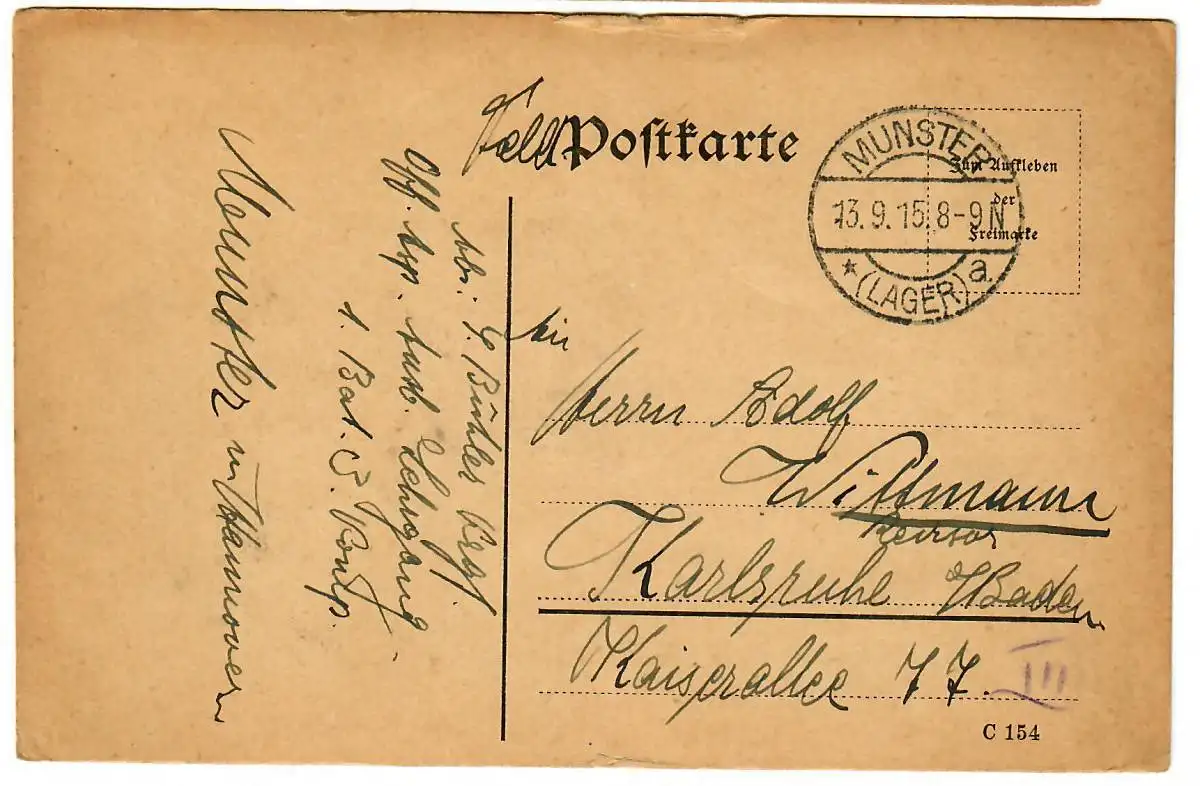 Feld Postkarte
MUNSTER
13.9.15. 8-9N
★ (LAGER) a.
Zum Aufkleben
der
Freimarke
Abs: G. Bühler Vzf.
Off. Asp. Ausb. Lehrgang.
1. Bat. 3. Komp.
Munster in Hannover
An
Herrn Adolf
Wittmann
Revisor
Karlsruhe i/Baden
Kaiserallee 77.
III
C 154